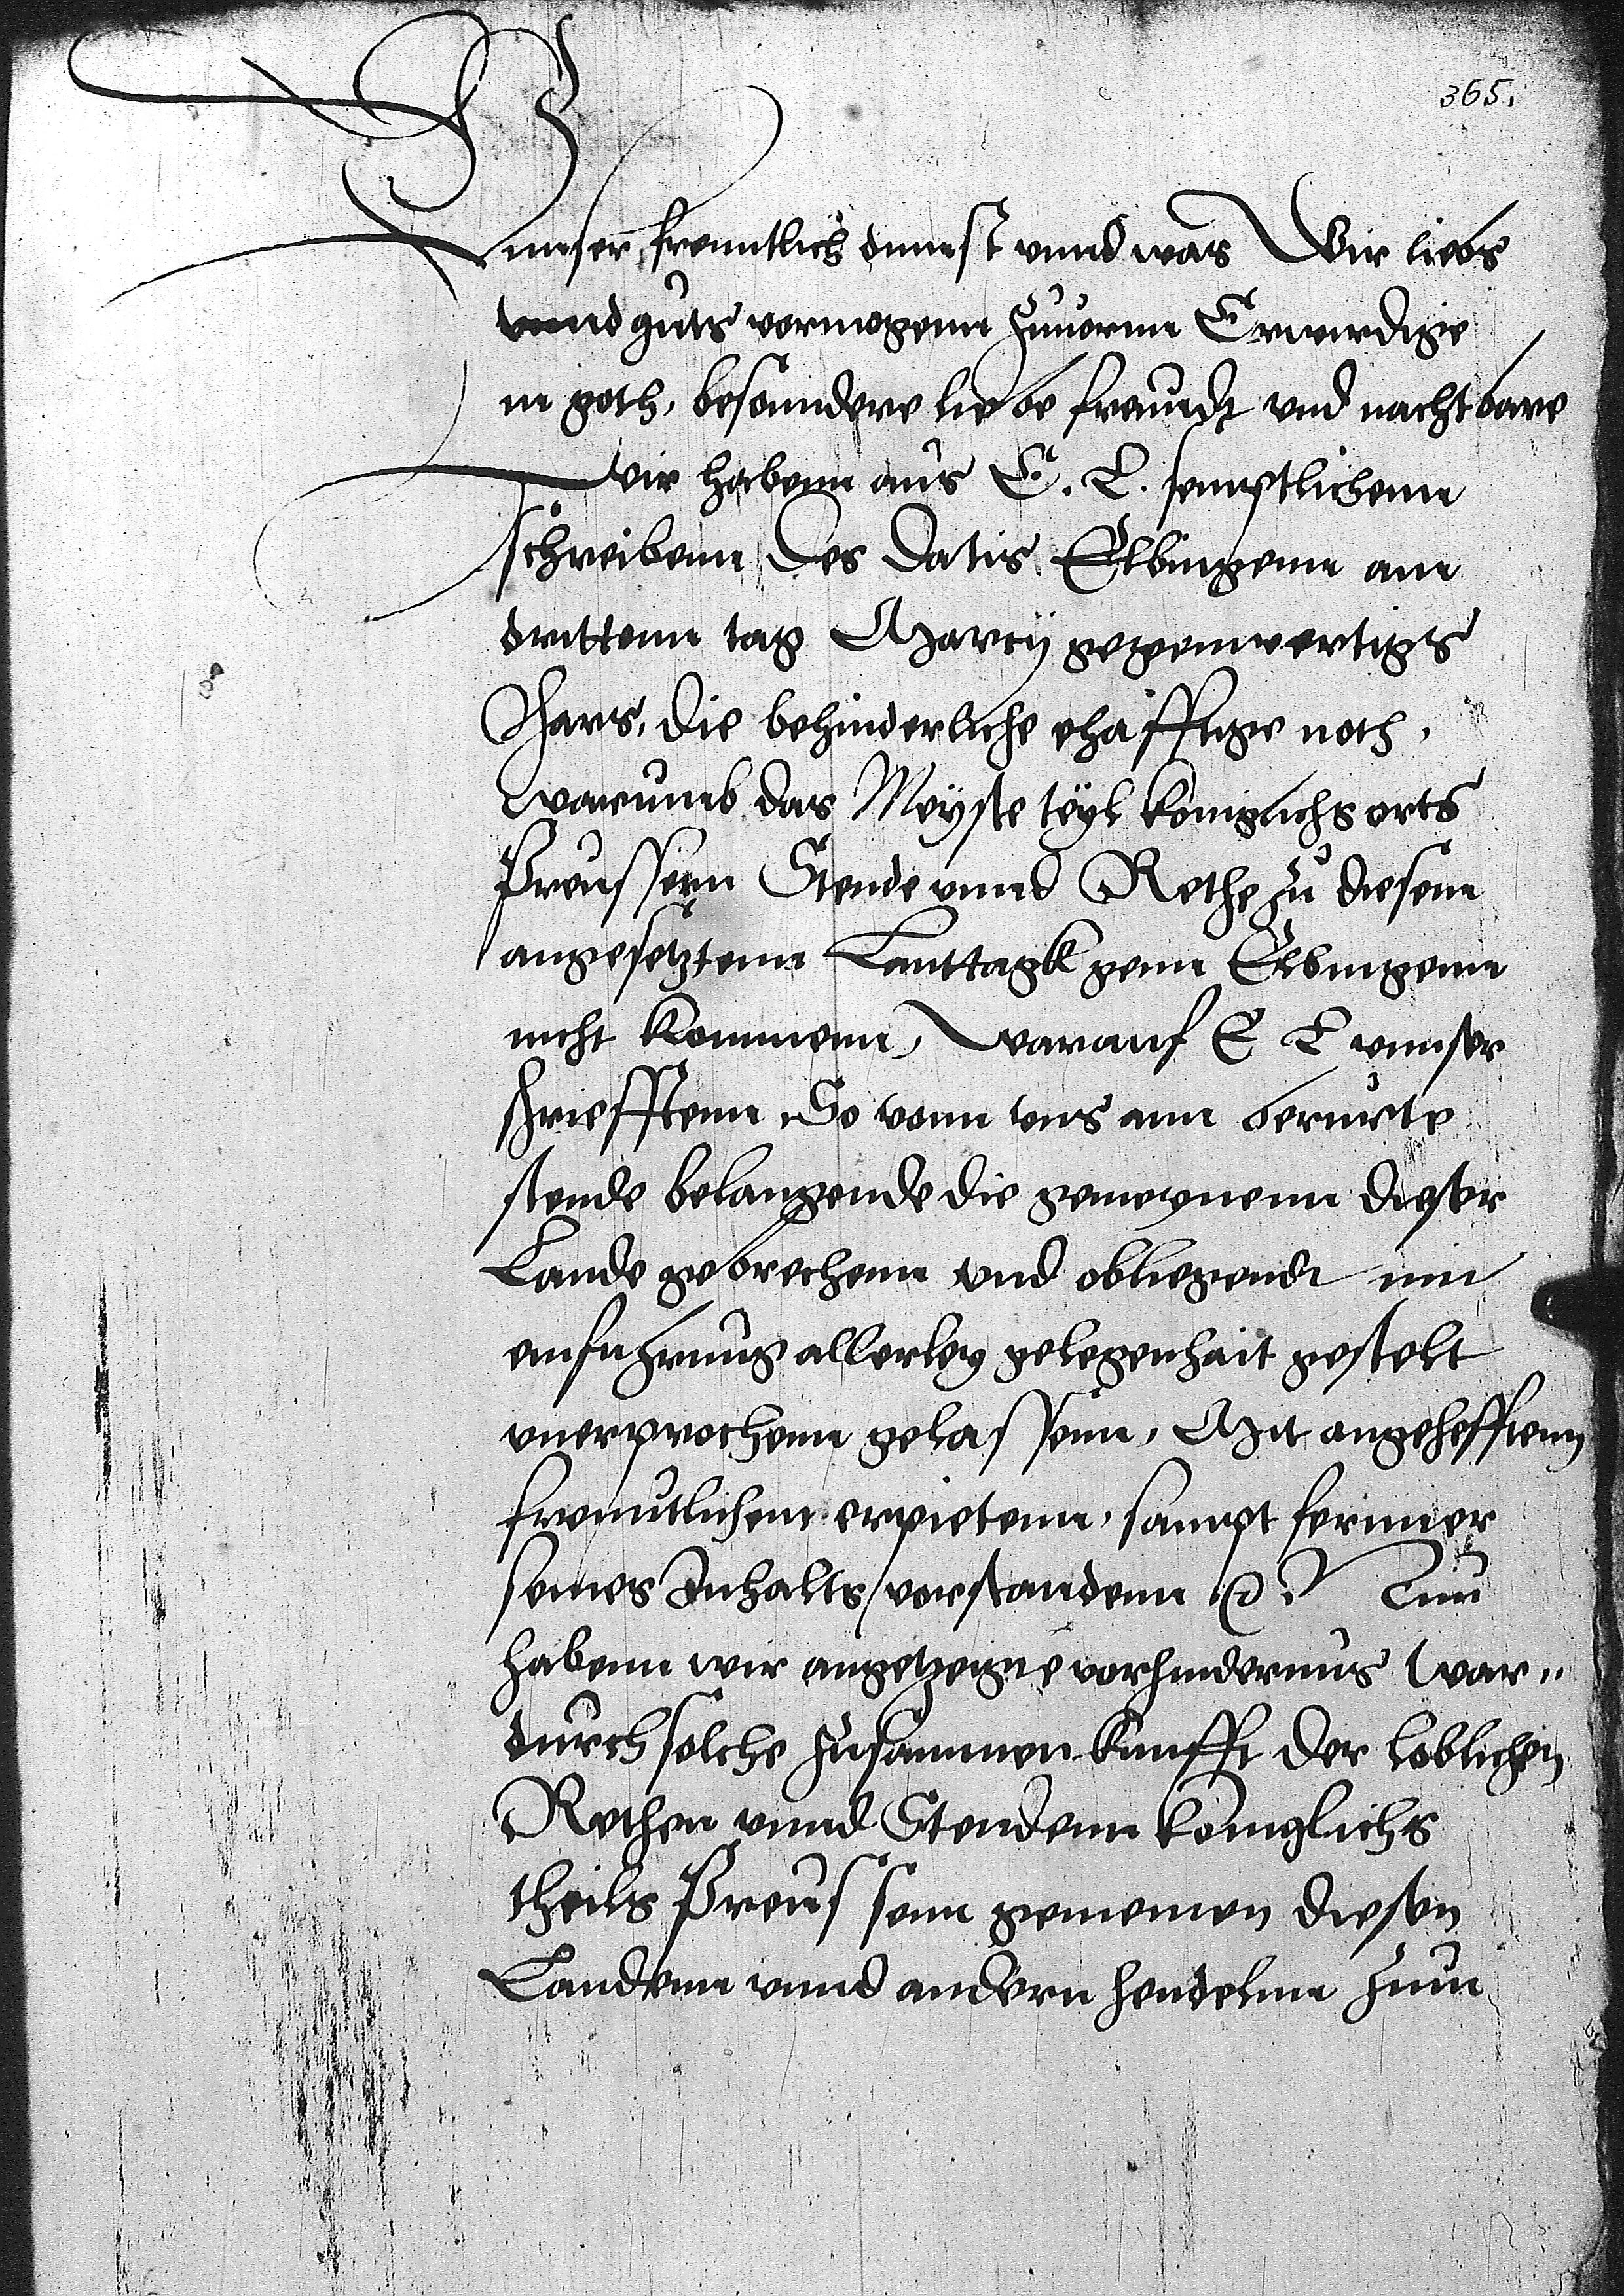 365.
Unnser freuntlich dinnst unnd was Wir liebs
unnd guts vermogenn zuuornn Erwirdige
in goth, besonndere liebe freundt und nachtbare
Wir habenn aus E. L. semptlichenn
schreibenn des datis Elbingenn am
drittenn tag Marcy gegennwertigs
Jhars, die behinderliche ehafftige noth,
warumb das Meyste teyl koniglichs orts
Preussenn Stende unnd Rethe zu diesem
angesetztenn Lanttagk genn Elbingenn
nicht kommenn, warauf E L unnser
schriefftenn So vonn uns ann berurte
stende belangende die gemeynenn dieser
Lande gebrechenn und obliegendt mit
einfuhrung allerley gelegenhait gestelt
unerprochenn gelassenn, Mit angehefftem
freuntlichem erpietenn, sampt ferrner
seines Inhalts, vorstandenn Nun
habenn wir angetzeigte vorhindernus war„
durch solche zusammen kunfft der loblichen
Rethen unnd Stendenn koniglichs
theils Preussenn gemeinen diesen
Landenn unnd andern hendelnn zum